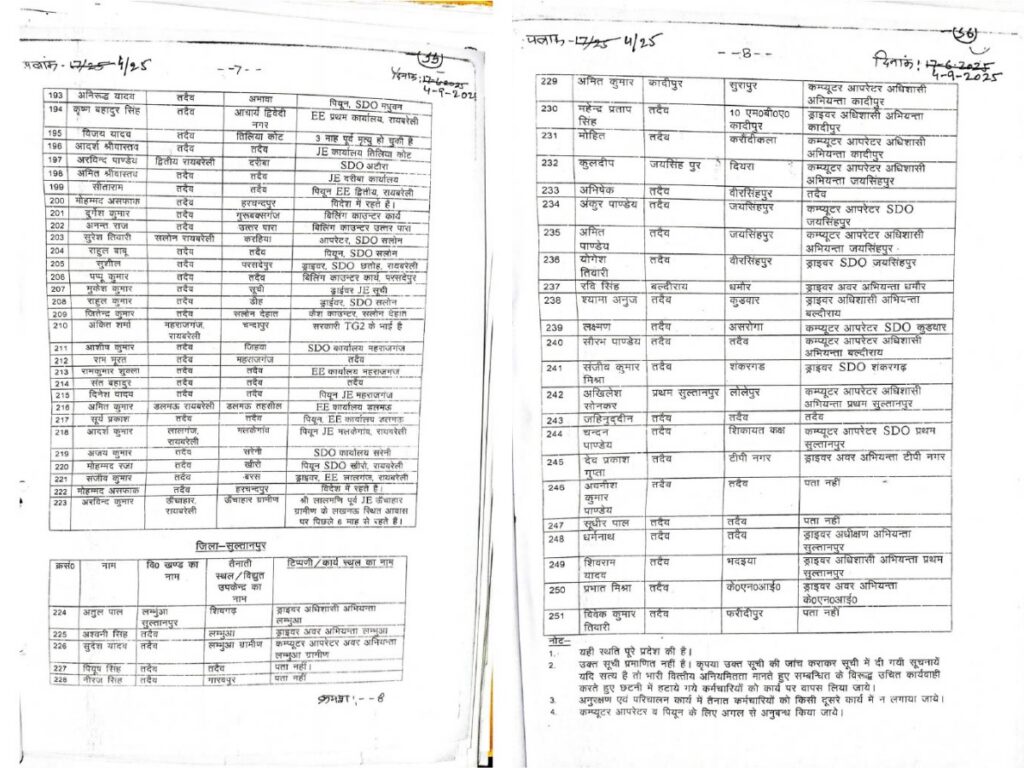 पत्रांक-17/25 4/25
--7--
55
दिनांक: 17-6-2025
4-9-202
193 अनिरूद्ध यादव तदैव अभावा पियून, SDO मधुवन
194 कृष्ण बहादुर सिंह तदैव आचार्य द्विवेदी नगर EE प्रथम कार्यालय, रायबरेली
195 विजय यादव तदैव तिलिया कोट 3 माह पूर्व मृत्यु हो चुकी है
196 आदर्श श्रीवास्तव तदैव तदैव JE कार्यालय तिलिया कोट
197 अरविन्द पाण्डेय द्वितीय रायबरेली दरीबा SDO अटौरा
198 अमित श्रीवास्तव तदैव तदैव JE दरीबा कार्यालय
199 सीताराम तदैव तदैव पियून EE द्वितीय, रायबरेली
200 मोहम्मद असफाक तदैव हरचन्दपुर विदेश में रहते है।
201 दुर्गेश कुमार तदैव गुरूबक्सगंज बिलिंग काउन्टर कार्य
202 अनन्त राज तदैव उत्तर पारा बिलिंग काउन्टर उत्तर पारा
203 सुरेश तिवारी सलोन रायबरेली करहिया आपरेटर, SDO सलोन
204 राहुल बाबू तदैव तदैव पियून, SDO सलोन
205 सुशील तदैव परसदेपुर ड्राइवर, SDO छतोह, रायबरेली
206 पप्पू कुमार तदैव तदैव बिलिंग काउन्टर कार्य, परसदेपुर
207 मुकेश कुमार तदैव सूची ड्राईवर JE सूची
208 राहुल कुमार तदैव डीह ड्राईवर, SDO सलोन
209 जितेन्द्र कुमार तदैव सलोन देहात कैश काउन्टर, सलोन देहात
210 अंकित शर्मा महराजगंज, रायबरेली चन्दापुर सरकारी TG2 के भाई है
211 आशीष कुमार तदैव जिहवा SDO कार्यालय महराजगंज
212 राम मूरत तदैव महराजगंज तदैव
213 रामकुमार शुक्ला तदैव तदैव EE कार्यालय महराजगंज
214 संत बहादुर तदैव तदैव तदैव
215 दिनेश यादव तदैव तदैव पियून JE महराजगंज
216 अमित कुमार डलमऊ रायबरेली डलमऊ तहसील EE कार्यालय डलमऊ
217 सूर्य प्रकाश तदैव तदैव पियून, EE कार्यालय डलमऊ
218 आदर्श कुमार लालगंज, रायबरेली मलकेगांव पियून JE मलकेगांव, रायबरेली
219 अजय कुमार तदैव सरेनी SDO कार्यालय सरेनी
220 मोहम्मद रजा तदैव खीरो पियून SDO खीरो, रायबरेली
221 संजीव कुमार तदैव बरस ड्राइवर, EE लालगंज, रायबरेली
222 मोहम्मद असफाक तदैव हरचन्दपुर विदेश में रहते है।
223 अरविन्द कुमार ऊँचाहार, रायबरेली ऊँचाहार ग्रामीण श्री लालमणि पूर्व JE ऊँचाहार ग्रामीण के लखनऊ स्थित आवास पर पिछले 6 माह से रहते है।
जिला-सुल्तानपुर
क्रसं० नाम वि० खण्ड का नाम तैनाती स्थल/विद्युत उपकेन्द्र का नाम टिप्पणी/कार्य स्थल का नाम
224 अतुल पाल लम्भुआ सुल्तानपुर शिवगढ़ ड्राइवर अधिशासी अभियन्ता लम्भुआ
225 अश्वनी सिंह तदैव लम्भुआ ड्राइवर अवर अभियन्ता लम्भुआ
226 सुदेश यादव तदैव लम्भुआ ग्रामीण कम्प्यूटर आपरेटर अवर अभियन्ता लम्भुआ ग्रामीण
227 पियूष सिंह तदैव तदैव पता नहीं।
228 नीरज सिंह तदैव गारवपुर पता नहीं
क्रमशः--8
पत्रांक-17/25 4/25
--8--
56
दिनांक: 17-6-2025
4-9-2025
229 अमित कुमार कादीपुर सुरापुर कम्प्यूटर आपरेटर अधिशासी अभियन्ता कादीपुर
230 महेन्द्र प्रताप सिंह तदैव 10 एम०बी०ए० कादीपुर ड्राइवर अधिशासी अभियन्ता कादीपुर
231 मोहित तदैव करौंदीकला कम्प्यूटर आपरेटर अधिशासी अभियन्ता कादीपुर
232 कुलदीप जयसिंह पुर दियरा कम्प्यूटर आपरेटर अधिशासी अभियन्ता जयसिंहपुर
233 अभिषेक तदैव वीरसिंहपुर तदैव
234 अंकुर पाण्डेय तदैव जयसिंहपुर कम्प्यूटर आपरेटर SDO जयसिंहपुर
235 अमित पाण्डेय तदैव जयसिंहपुर कम्प्यूटर आपरेटर अधिशासी अभियन्ता जयसिंहपुर
236 योगेश तियारी तदैव वीरसिंहपुर ड्राइवर SDO जयसिंहपुर
237 रवि सिंह बल्दीराय धमौर ड्राइवर अवर अभियन्ता धमौर
238 श्यामा अनुज तदैव कुडवार ड्राइवर अधिशासी अभियन्ता बल्दीराय
239 लक्ष्मण तदैव असरोगा कम्प्यूटर आपरेटर SDO कुडवार
240 सौरभ पाण्डेय तदैव तदैव कम्प्यूटर आपरेटर अधिशासी अभियन्ता बल्दीराय
241 संजीय कुमार मिश्रा तदैव शंकरगड ड्राइवर SDO शंकरगढ़
242 अखिलेश सोनकर प्रथम सुल्तानपुर लोलेपुर कम्प्यूटर आपरेटर अधिशासी अभियन्ता प्रथम सुल्तानपुर
243 जहिनुद्दीन तदैव तदैव तदैव
244 चन्दन पाण्डेय तदैव शिकायत कक्ष कम्प्यूटर आपरेटर SDO प्रथम सुल्तानपुर
245 देव प्रकाश गुप्ता तदैव टीपी नगर ड्राइवर अवर अभियन्ता टीपी नगर
246 अवनीश कुमार पाण्डेय तदैव तदैव पता नहीं
247 सुधीर पाल तदैव तदैव पता नहीं
248 धर्मनाथ तदैव तदैव ड्राइवर अधीक्षण अभियन्ता सुल्तानपुर
249 शिवराम यादव तदैव भदइया ड्राइवर अधिशासी अभियन्ता प्रथम सुल्तानपुर
250 प्रभात मिश्रा तदैव के०एन०आई० ड्राइवर अवर अभियन्ता के०एन०आई०
251 विवेक कुमार तियारी तदैव फरीदीपुर पता नहीं
नोटः-
1. यही स्थिति पूरे प्रदेश की है।
2. उक्त सूची प्रमाणित नहीं है। कृपया उक्त सूची की जांच कराकर सूची में दी गयी सूचनायें
यदि सत्य है तो भारी वित्तीय अनियमितता मानते हुए सम्बन्धित के विरूद्ध उचित कार्यवाही
करते हुए छटनी में हटाये गये कर्मचारियों को कार्य पर वापस लिया जाये।
3. अनुरक्षण एवं परिचालन कार्य में तैनात कर्मचारियों को किसी दूसरे कार्य में न लगाया जाये।
4. कम्प्यूटर आपरेटर व पियून के लिए अगल से अनुबन्ध किया जाये।